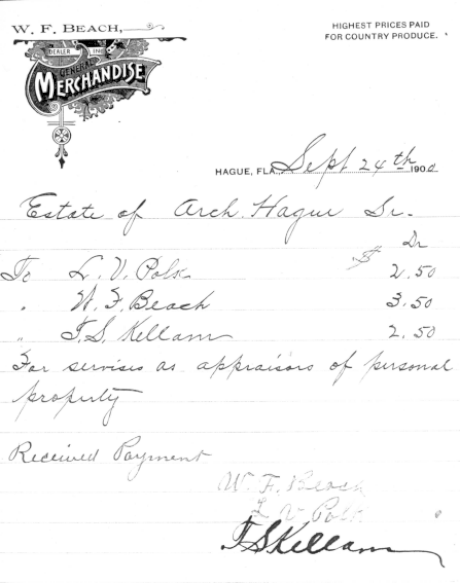 W. F. BEACH,
HIGHEST PRICES PAID
FOR COUNTRY PRODUCE.
DEALER IN
GENERAL
MERCHANDISE
HAGUE, FLA., Sept 24th 1900
Estate of Arch. Hague Sr.
Dr
To L. V. Polk $ 2.50
" W. F. Beach 3.50
" T. S. Kellam 2.50
For servises as appraisors of personal
property
Received Payment
W. F. Beach
L V Polk
T S Kellam